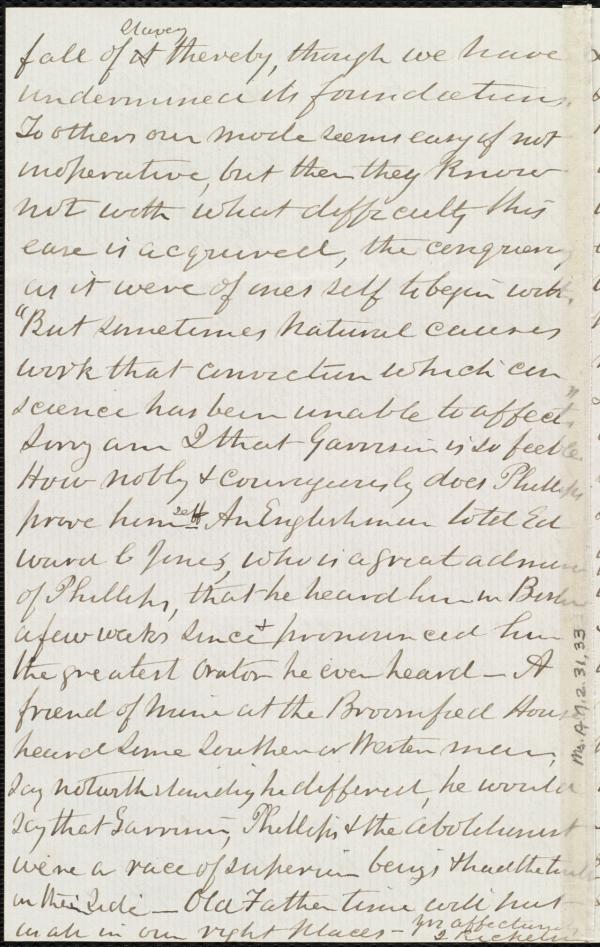 Slavery
fall of it thereby, though we have
undermined its foundations.
To others our mode seems easy if not
inoperative, but then they know
not with what difficulty this
ease is acquired, the conquering
as it were of ones self to begin with.
"But sometimes natural causes
work that conviction which con
science has been unable to affect."
Sorry am I that Garrison is so feeble.
How nobly & courageously does Phillips
prove himself. An Englishman told Ed
ward C Jones, who is a great admirer
of Phillips, that he heard him in Boston
a few weeks since & pronounced him
the greatest orator he ever heard — A
friend of mine at the Broomfied House
heard some Southen or Western man,
say notwithstanding he differed, he would
say that Garrison, Phillips & the abolitionist
were a race of superior beings & had the truth
on their side — Old Father time will put
us all in our right places — Yrs affectionately
Ms. A. 9. 2. 31, 33